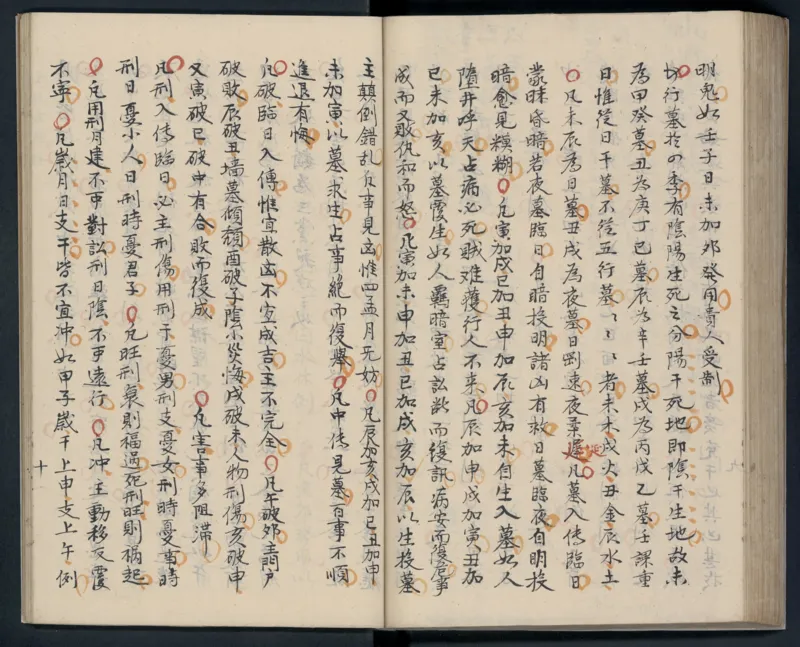 明鬼如壬子日未加卯發用貴人受制
切行墓於四季有陰陽生死之分陽干死地即陰干生地故未
為甲癸墓丑為庚丁已墓辰為辛壬墓戌為丙戊乙墓壬課重
日惟從日干墓不從五行墓〻〻〻者未木戌火丑金辰水土
凡未辰為日墓丑戌為夜墓日剛速夜柔遲凡墓入傳臨日
蒙昧昏暗若夜墓臨日自暗投明諸凶有救日墓臨夜自明投
暗愈見糢糊凡寅加戌巳加丑申加辰亥加未自生入墓如人
墮井呼天占病必死賊难獲行人不来凡辰加申戌加寅丑加
巳未加亥以墓覆生如人羈暗室占訟敗而復訊病安而復君事
成而又敗仇和而怒凡寅加未申加丑巳加戌亥加辰以生投墓
主顛倒錯乱百事見凶惟四孟月无妨凡辰加亥戌加巳丑加申
未加寅以墓求生占事絶而復舉凡中傳見墓百事不順
進退有悔
凡破臨日入傳惟宜散凶不宜成吉主不完全凡午破卯主門戶
破敗辰破丑墙墓傾頹酉破子陰小災悔戌破未人物刑傷亥破申
又寅破巳破中有合敗而復成凡害事多阻滞
凡刑入傳臨日必主刑傷用刑干憂男刑支憂女刑時憂當時
刑日憂小人日刑時憂君子凡旺刑衰則福過死刑旺則禍起
凡用刑月建不可對訟刑日陰不可遠行凡冲主動移反覆
不寧凡歲月日支干皆不宜冲如甲子歲干上申支上午例
十